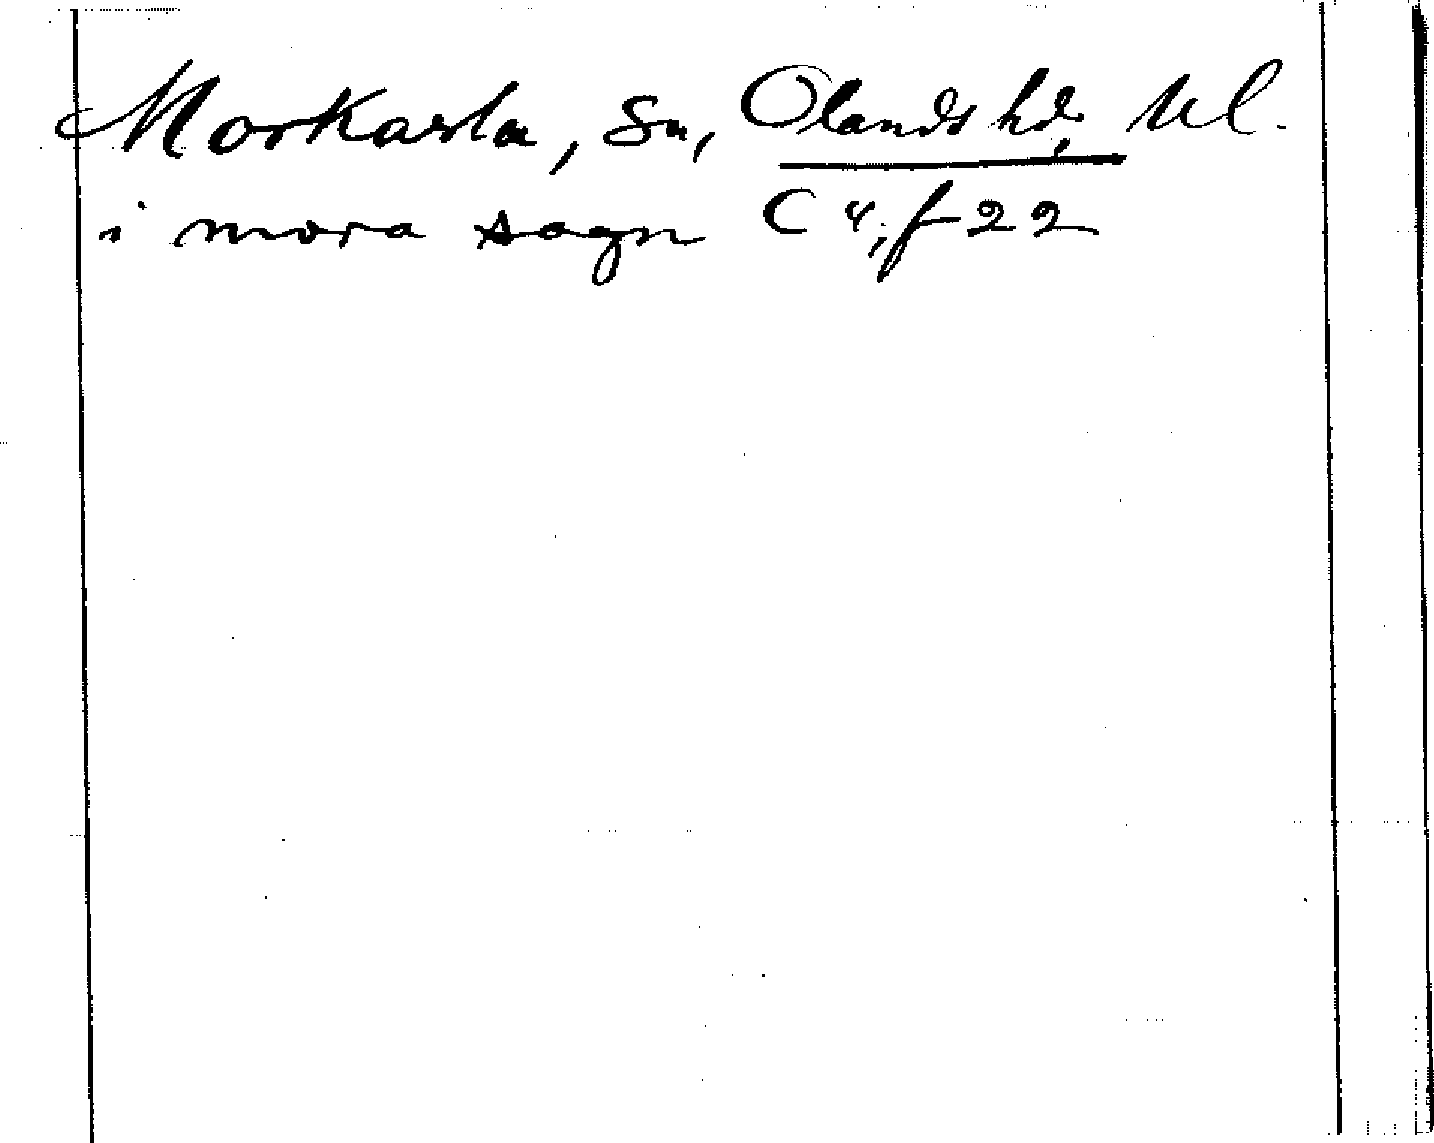 Morkarla, Sn, Olands hd, Upl.
i mora sogn C 4, f 22